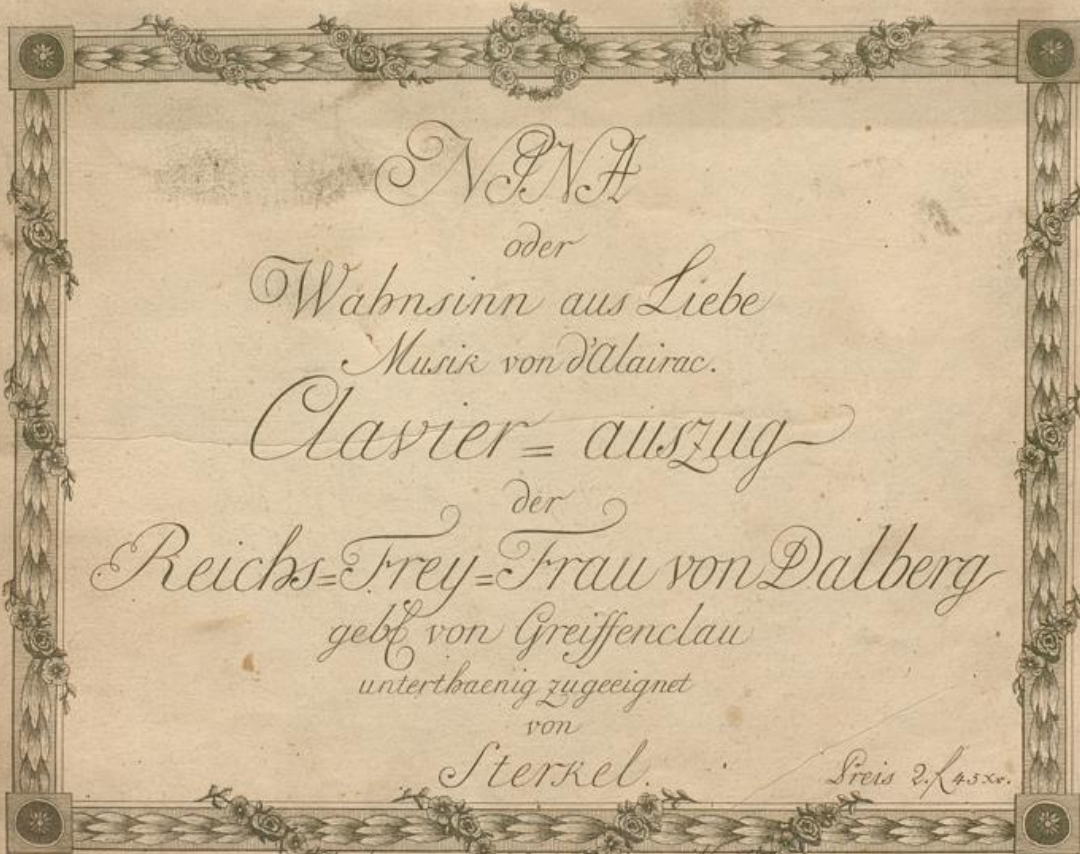 NINA
oder
Wahnsinn aus Liebe
Musik von d'Alairac.
Clavier = auszug
der
Reichs=Frey=Frau von Dalberg
geb. von Greiffenclau
unterthaenig zugeeignet
von
Sterkel.
Preis 2. f 45 xr.